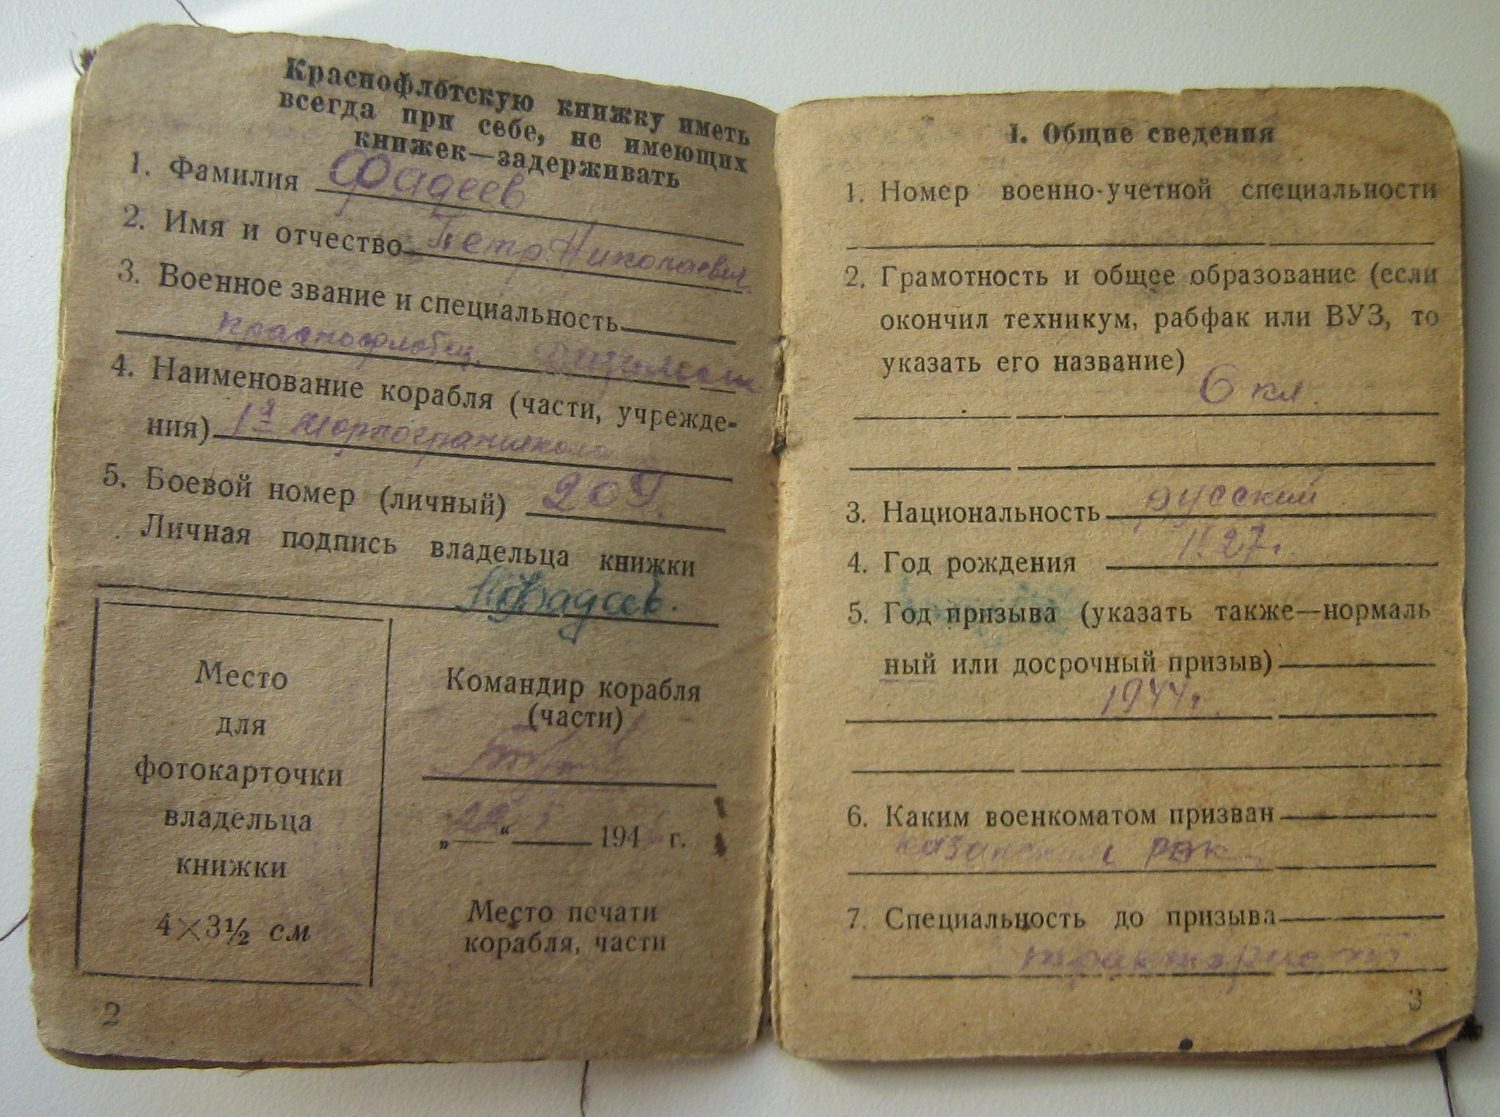 Краснофлотскую книжку иметь
всегда при себе, не имеющих
книжек—задерживать
1. Фамилия Фадеев
2. Имя и отчество Петр Николаевич
3. Военное звание и специальность
краснофлотец.
4. Наименование корабля (части, учрежде-
ния)
5. Боевой номер (личный) 209.
Личная подпись владельца книжки
Фадеев.
Место
для
фотокарточки
владельца
книжки
4×3½ см
Командир корабля
(части)
„ “ 194 г.
Место печати
корабля, части
2
I. Общие сведения
1. Номер военно-учетной специальности
2. Грамотность и общее образование (если
окончил техникум, рабфак или ВУЗ, то
указать его название)
6 кл.
3. Национальность русский
4. Год рождения
5. Год призыва (указать также—нормаль
ный или досрочный призыв)
1944г.
6. Каким военкоматом призван
казанским РВК
7. Специальность до призыва
тракторист
3